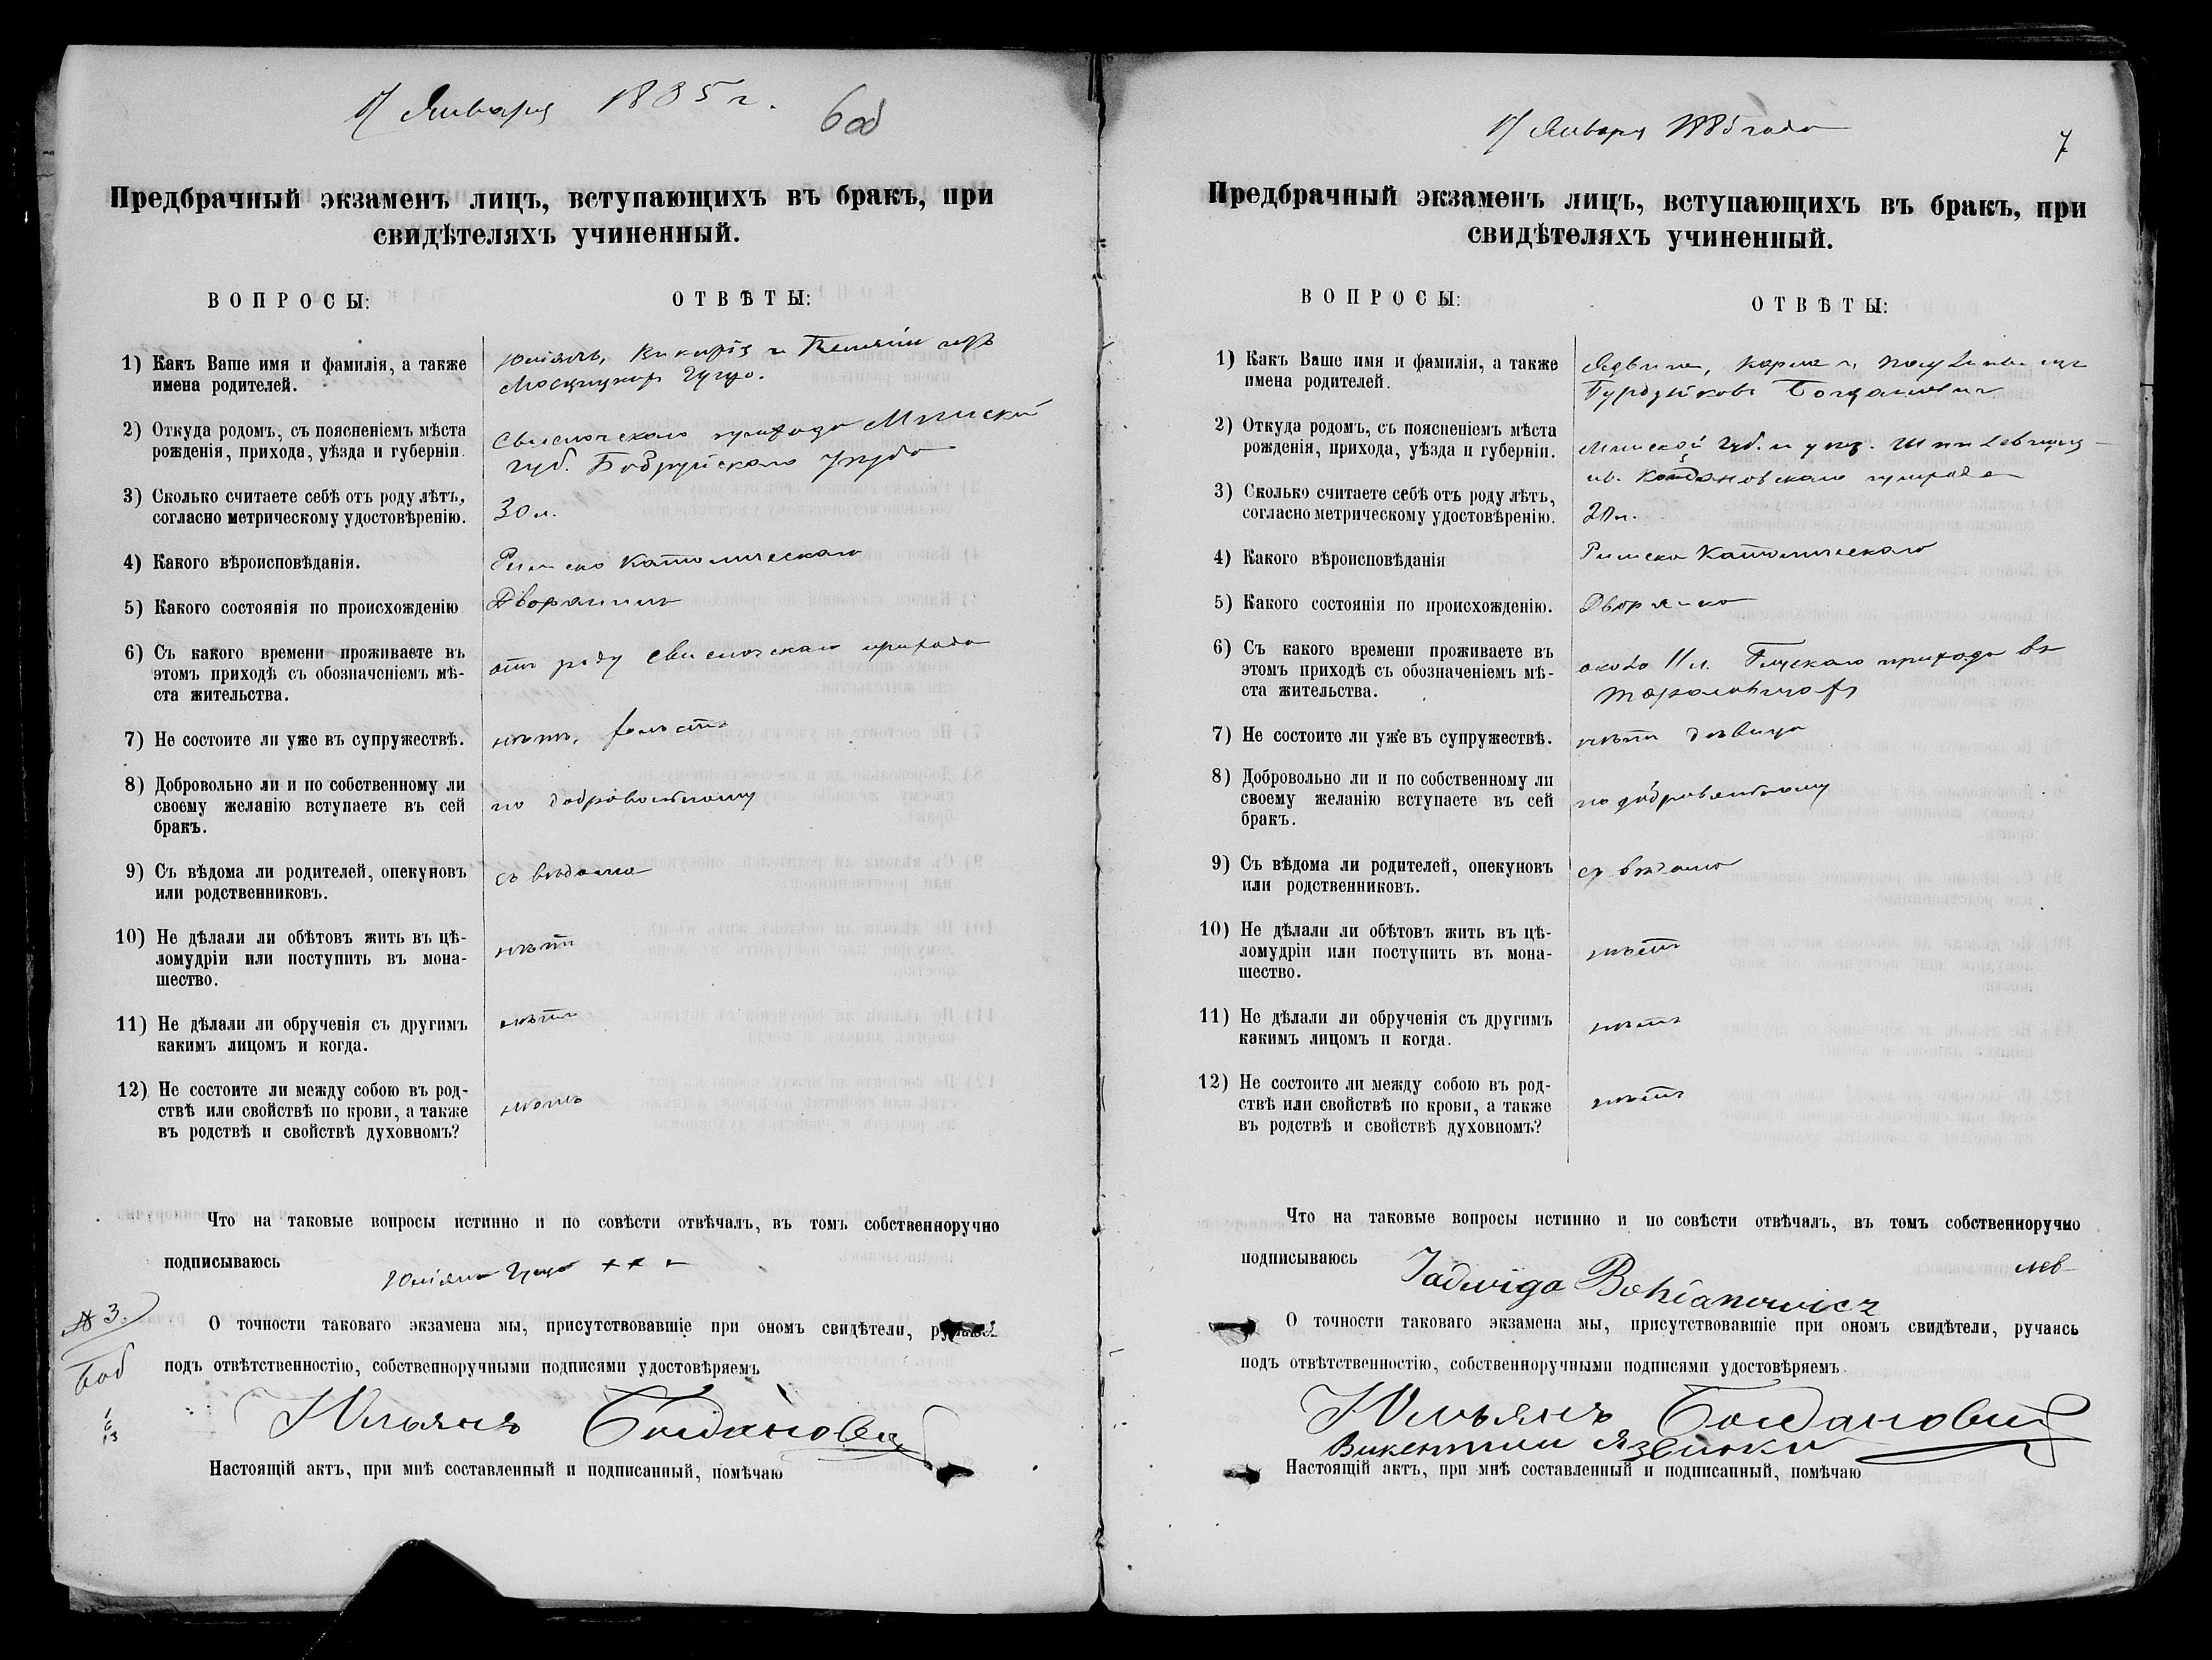 Января 1885 г.
6 об
Предбрачный экзаменъ лицъ, вступающихъ въ бракъ, при
свидѣтеляхъ учиненный.
ВОПРОСЫ:
ОТВѢТЫ:
1) Какъ Ваше имя и фамилія, а также
имена родителей.
Юліянъ,
2) Откуда родомъ, съ поясненіемъ мѣста
рожденія, прихода, уѣзда и губерніи.
Свислочскаго прихода Минской
губ. Бобруйскаго уѣзда
3) Сколько считаете себѣ отъ роду лѣтъ,
согласно метрическому удостовѣренію.
30 л.
4) Какого вѣроисповѣданія.
Римско Католическаго
5) Какого состоянія по происхожденію
Дворянинъ
6) Съ какого времени проживаете въ
этомъ приходѣ съ обозначеніемъ мѣ-
ста жительства.
отъ роду Свислочскаго прихода
7) Не состоите ли уже въ супружествѣ.
нѣтъ, холостъ
8) Добровольно ли и по собственному ли
своему желанію вступаете въ сей
бракъ.
по добровольному
9) Съ вѣдома ли родителей, опекуновъ
или родственниковъ.
съ вѣдома
10) Не дѣлали ли обѣтовъ жить въ цѣ-
ломудріи или поступить въ мона-
шество.
нѣтъ
11) Не дѣлали ли обрученія съ другимъ
какимъ лицомъ и когда.
нѣтъ
12) Не состоите ли между собою въ род-
ствѣ или свойствѣ по крови, а также
въ родствѣ и свойствѣ духовномъ?
нѣтъ
Что на таковые вопросы истинно и по совѣсти отвѣчалъ, въ томъ собственноручно
подписываюсь
Юліянъ
№ 3.
6 об
О точности таковаго экзамена мы, присутствовавшіе при ономъ свидѣтели,
подъ отвѣтственностію, собственноручными подписями удостовѣряемъ
Юльянъ Богдановичъ
Настоящій актъ, при мнѣ составленный и подписанный, помѣчаю
Января 1885 года
7
Предбрачный экзаменъ лицъ, вступающихъ въ бракъ, при
свидѣтеляхъ учиненный.
ВОПРОСЫ:
ОТВѢТЫ:
1) Какъ Ваше имя и фамилія, а также
имена родителей.
Ядвига,
Богдановичъ
2) Откуда родомъ, съ поясненіемъ мѣста
рожденія, прихода, уѣзда и губерніи.
Минской губ. и уѣз.
Койдановскаго прихода
3) Сколько считаете себѣ отъ роду лѣтъ,
согласно метрическому удостовѣренію.
4) Какого вѣроисповѣданія
Римско Католическаго
5) Какого состоянія по происхожденію.
Дворянка
6) Съ какого времени проживаете въ
этомъ приходѣ съ обозначеніемъ мѣ-
ста жительства.
около 11 л. прихода въ
7) Не состоите ли уже въ супружествѣ.
нѣтъ дѣвица
8) Добровольно ли и по собственному ли
своему желанію вступаете въ сей
бракъ.
по добровольному
9) Съ вѣдома ли родителей, опекуновъ
или родственниковъ.
съ вѣдома
10) Не дѣлали ли обѣтовъ жить въ цѣ-
ломудріи или поступить въ мона-
шество.
нѣтъ
11) Не дѣлали ли обрученія съ другимъ
какимъ лицомъ и когда.
нѣтъ
12) Не состоите ли между собою въ род-
ствѣ или свойствѣ по крови, а также
въ родствѣ и свойствѣ духовномъ?
нѣтъ
Что на таковые вопросы истинно и по совѣсти отвѣчалъ, въ томъ собственноручно
подписываюсь
Jadwiga Bohdanowicz
О точности таковаго экзамена мы, присутствовавшіе при ономъ свидѣтели, ручаясь
подъ отвѣтственностію, собственноручными подписями удостовѣряемъ.
Юльянъ Богдановичъ
Викентіи
Настоящій актъ, при мнѣ составленный и подписанный, помѣчаю